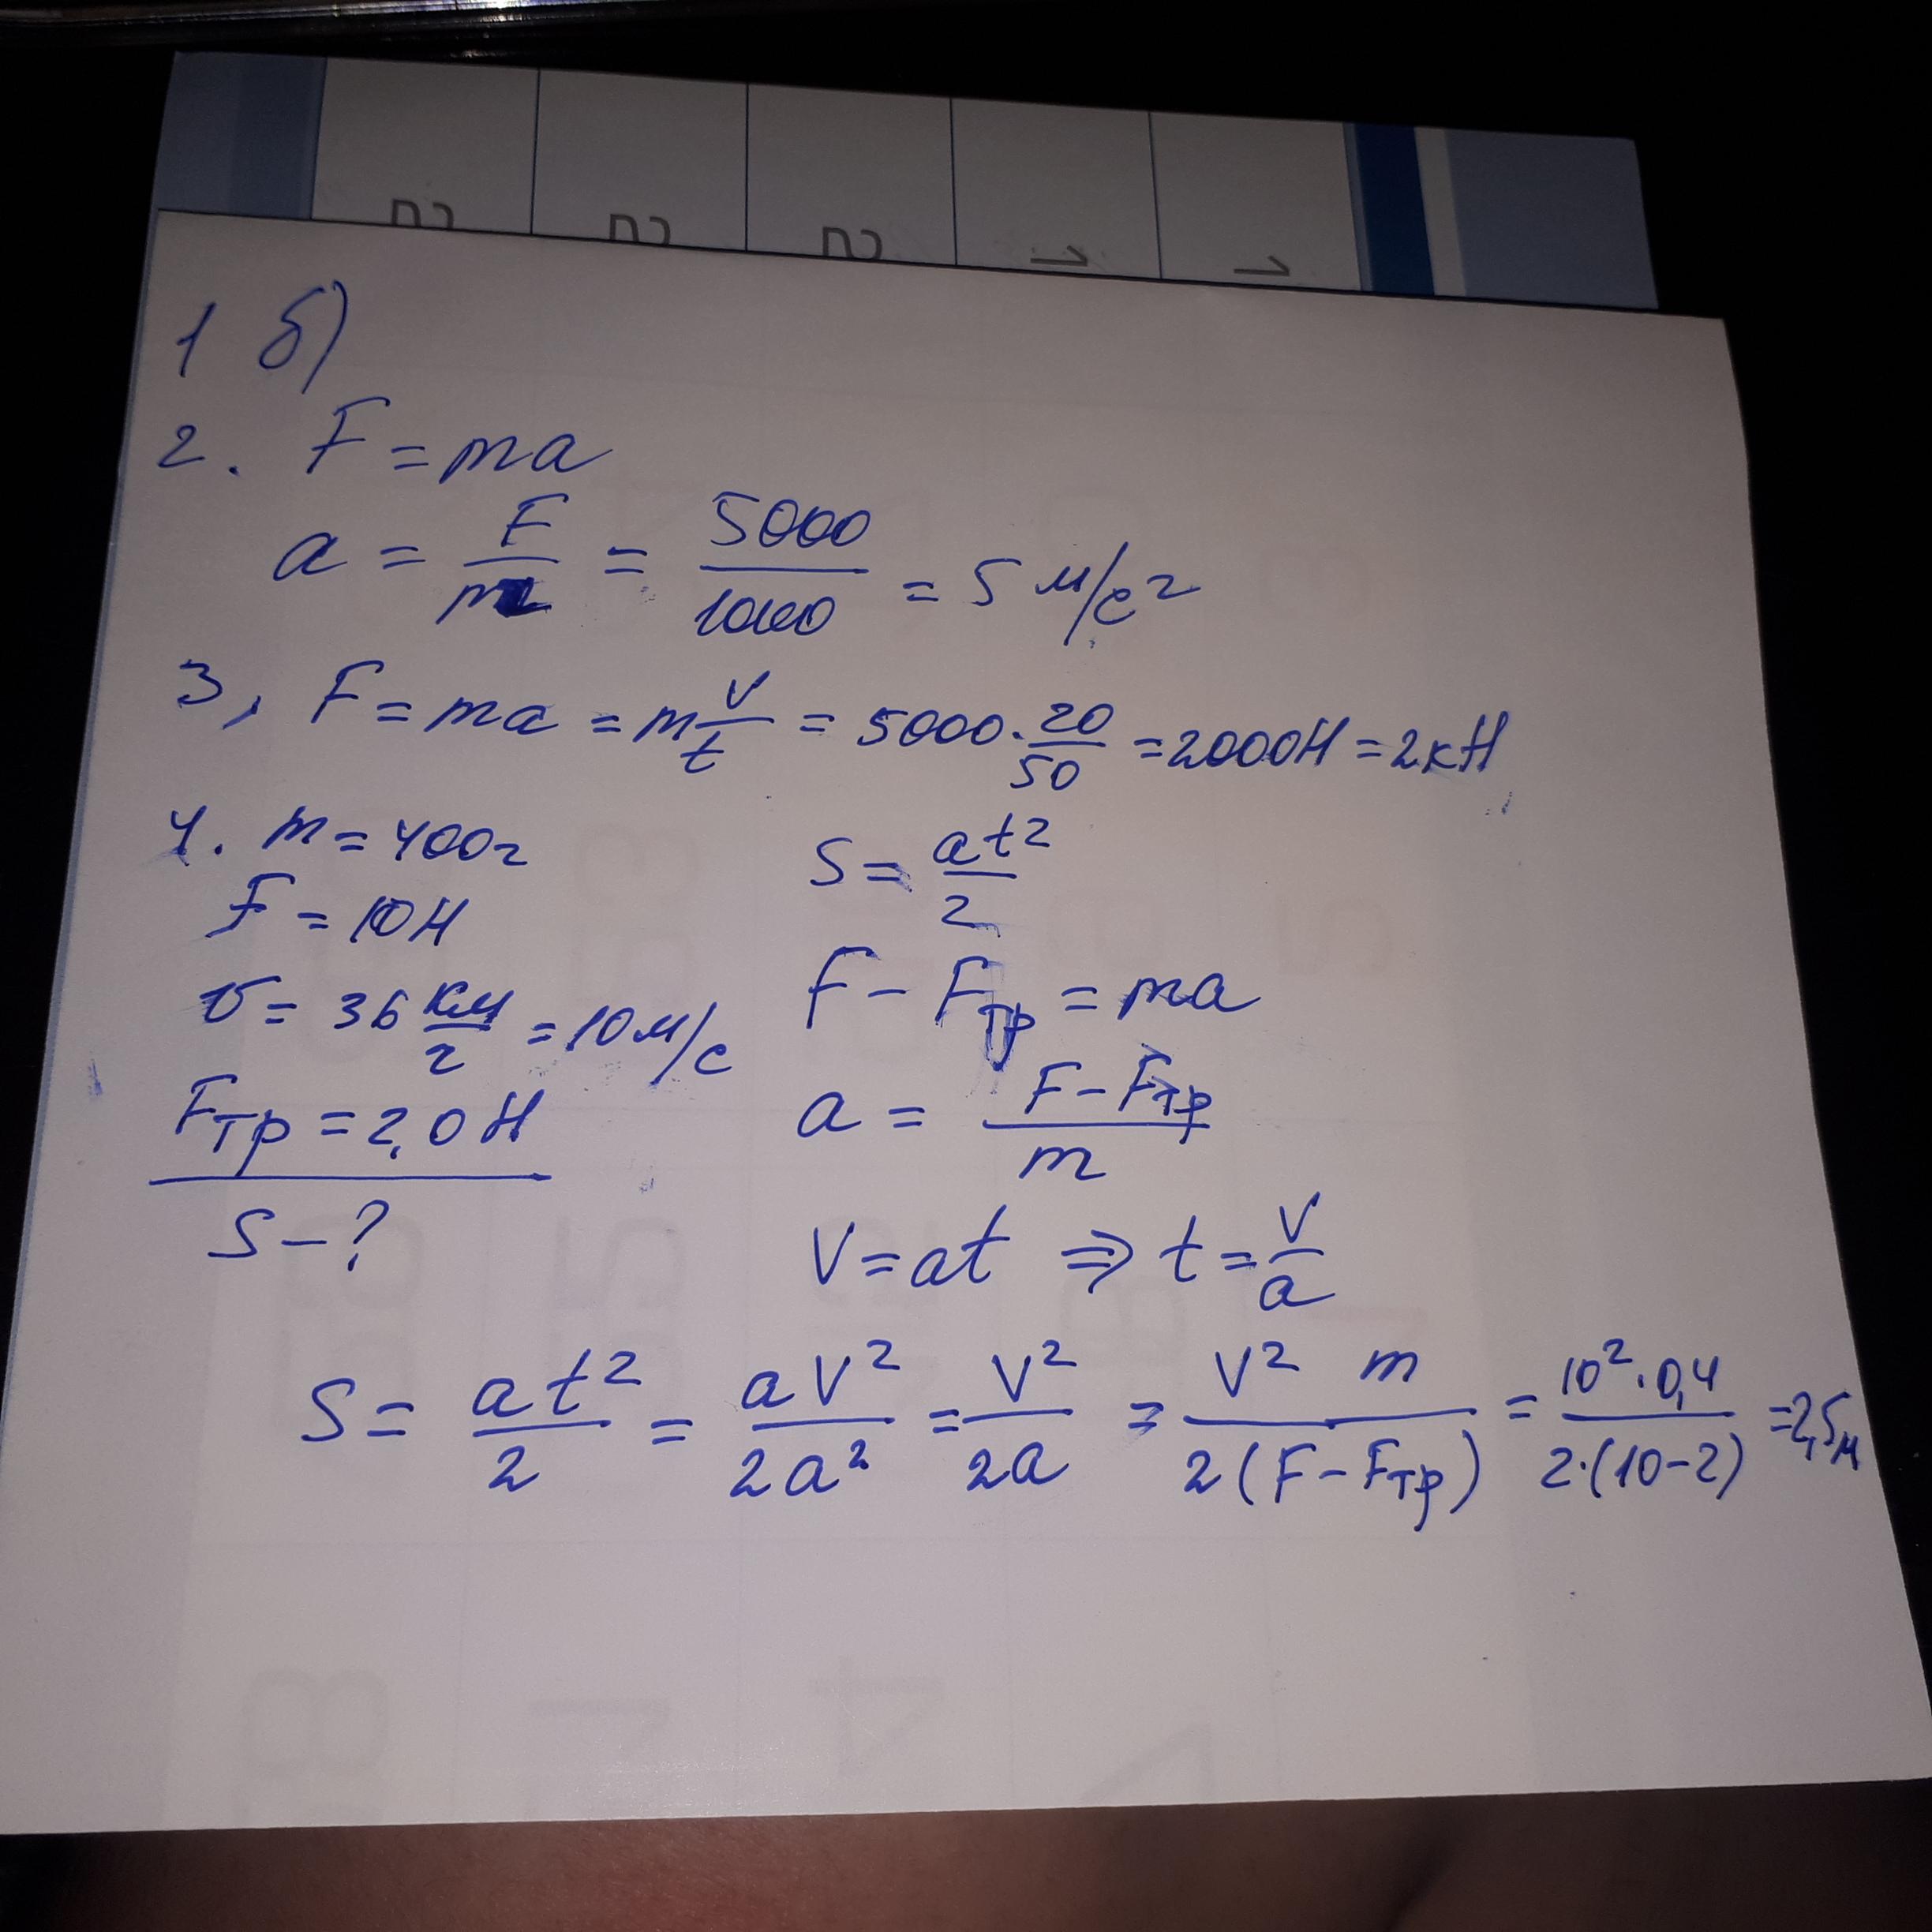 1 б)
2. F = ma
a = F/m = 5000/1000 = 5 м/с²
3, F = ma = m v/t = 5000 · 20/50 = 2000Н = 2кН
4. m = 400г
F = 10Н
υ = 36 км/г = 10 м/с
Fтр = 2,0 Н
S - ?
S = at²/2
F - Fтр = ma
a = F - Fтр/m
V = at ⇒ t = V/a
S = at²/2 = aV²/2a² = V²/2a = V² m/2(F - Fтр) = 10² · 0,4/2·(10-2) = 2,5м